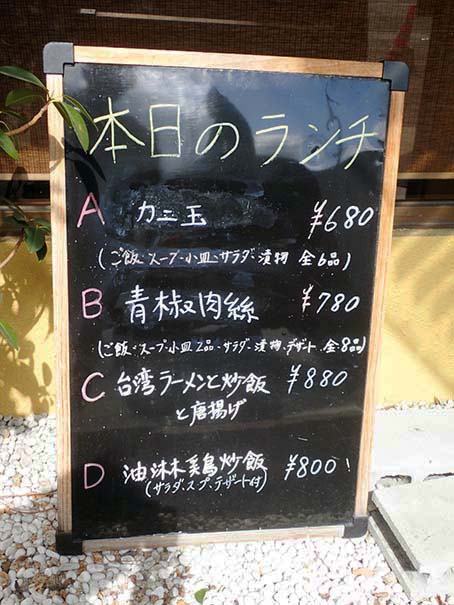 本日のランチ
A カニ玉 ¥680
(ご飯・スープ・小皿・サラダ・漬物 全6品)
B 青椒肉絲 ¥780
(ご飯・スープ・小皿2品・サラダ・漬物・デザート 全8品)
C 台湾ラーメンと炒飯 ¥880
と唐揚げ
D 油淋鶏炒飯 ¥800!
(サラダ、スープ、デザート付)